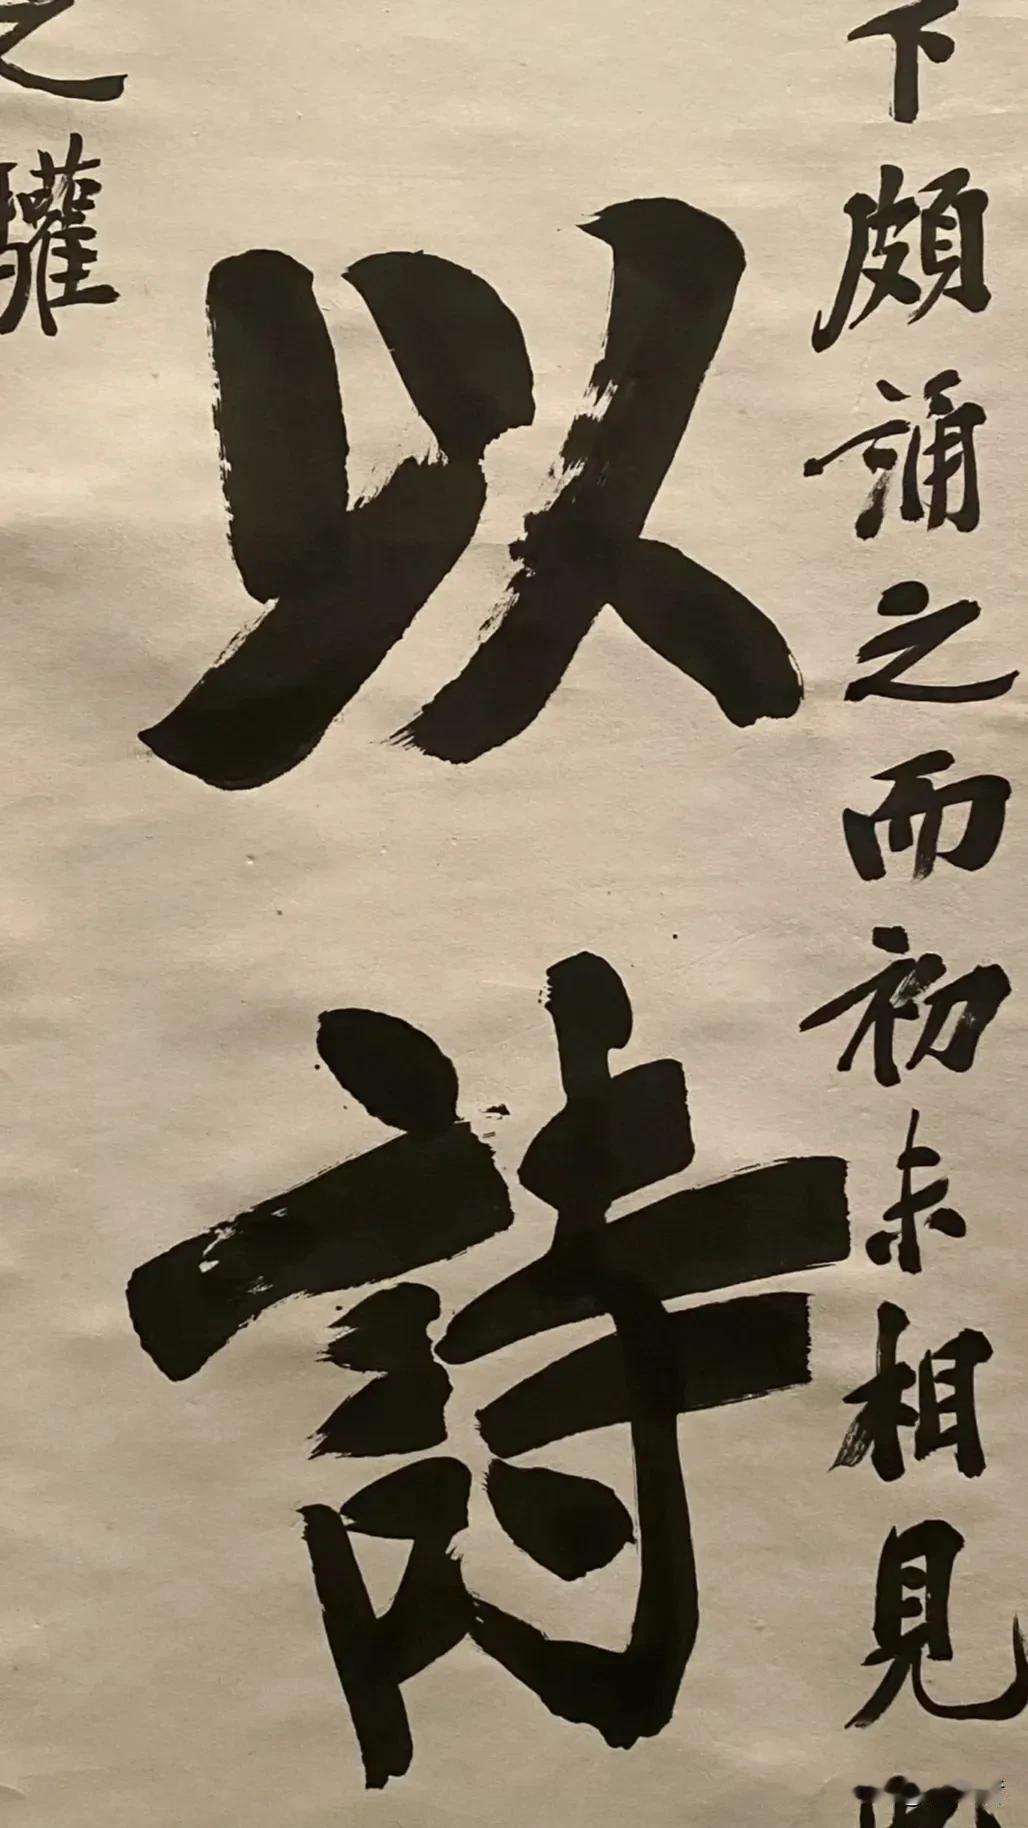 下頗誦之而初未相見
以詩
之驩